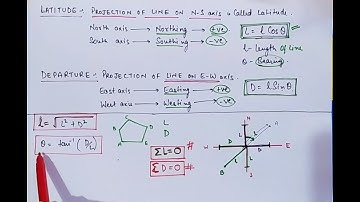 LATITUDE :- PROJECTION OF LINE ON N-S axis is Called Latitude.
North axis → Northing → +ve
South axis → Southing → -ve
L = l Cosθ
l - length of line
θ - Bearing
DEPARTURE :- PROJECTION OF LINE ON E-W axis.
East axis → Easting → +ve
West axis → Westing → -ve
D = l Sinθ
l = √L² + D²
θ = tan⁻¹ (D/L)
A
B
C
D
E
L
D
ΣL=0 #
ΣD=0 #
N
W
E
S
L
D